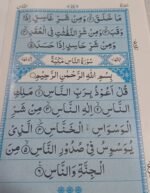 مَا خَلَقَ ۝ وَمِنْ شَرِّ غَاسِقٍ اِذَا
وَقَبَ ۝ وَمِنْ شَرِّ النَّفّٰثٰتِ فِی الْعُقَدِ ۝
وَمِنْ شَرِّ حَاسِدٍ اِذَا حَسَدَ ۝
سُوْرَةُ النَّاسِ مَكِّيَّةٌ
بِسْمِ اللّٰهِ الرَّحْمٰنِ الرَّحِيْمِ
قُلْ اَعُوْذُ بِرَبِّ النَّاسِ ۝ مَلِكِ
النَّاسِ ۝ اِلٰهِ النَّاسِ ۝ مِنْ شَرِّ
الْوَسْوَاسِ الْخَنَّاسِ ۝ الَّذِیْ
يُوَسْوِسُ فِیْ صُدُوْرِ النَّاسِ ۝ مِنَ
الْجِنَّةِ وَالنَّاسِ ۝